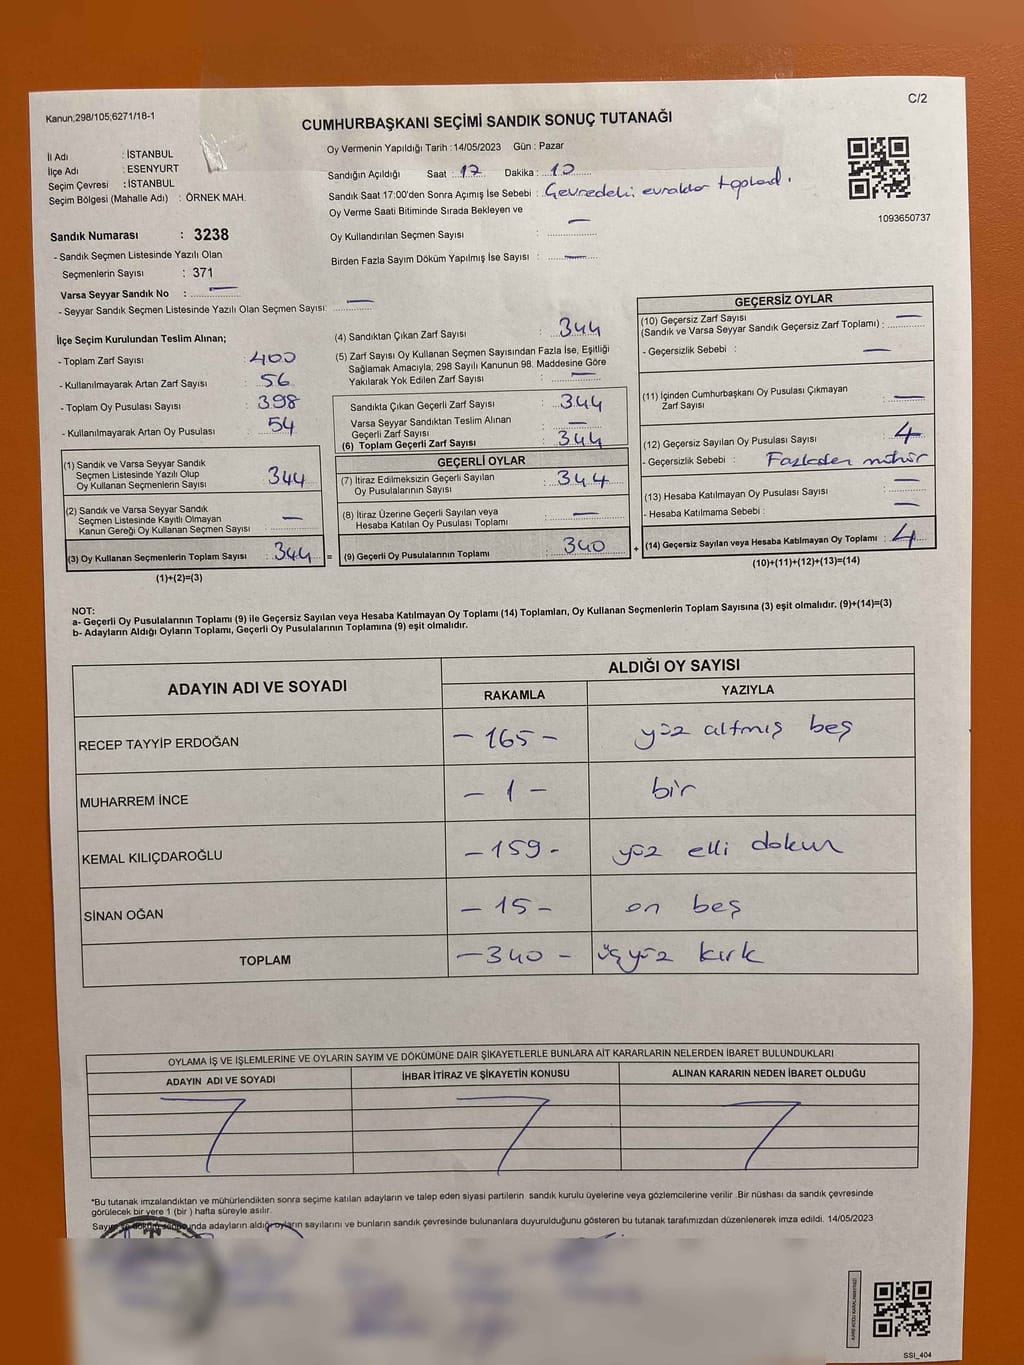 Kanun,298/105;6271/18-1
C/2
CUMHURBAŞKANI SEÇİMİ SANDIK SONUÇ TUTANAĞI
İl Adı : İSTANBUL
İlçe Adı : ESENYURT
Seçim Çevresi : İSTANBUL
Seçim Bölgesi (Mahalle Adı) : ÖRNEK MAH.
Oy Vermenin Yapıldığı Tarih :14/05/2023 Gün : Pazar
Sandığın Açıldığı Saat : 17 Dakika : 10
Sandık Saat 17:00'den Sonra Açımış İse Sebebi : Çevredeki evraklar toplandı.
Oy Verme Saati Bitiminde Sırada Bekleyen ve
Oy Kullandırılan Seçmen Sayısı : —
Birden Fazla Sayım Döküm Yapılmış İse Sayısı : —
1093650737
Sandık Numarası : 3238
- Sandık Seçmen Listesinde Yazılı Olan
Seçmenlerin Sayısı : 371
Varsa Seyyar Sandık No : —
- Seyyar Sandık Seçmen Listesinde Yazılı Olan Seçmen Sayısı: —
İlçe Seçim Kurulundan Teslim Alınan;
- Toplam Zarf Sayısı : 400
- Kullanılmayarak Artan Zarf Sayısı : 56
- Toplam Oy Pusulası Sayısı : 398
- Kullanılmayarak Artan Oy Pusulası : 54
(1) Sandık ve Varsa Seyyar Sandık
Seçmen Listesinde Yazılı Olup
Oy Kullanan Seçmenlerin Sayısı : 344
(2) Sandık ve Varsa Seyyar Sandık
Seçmen Listesinde Kayıtlı Olmayan
Kanun Gereği Oy Kullanan Seçmen Sayısı : —
(3) Oy Kullanan Seçmenlerin Toplam Sayısı : 344
(1)+(2)=(3)
=
(4) Sandıktan Çıkan Zarf Sayısı : 344
(5) Zarf Sayısı Oy Kullanan Seçmen Sayısından Fazla İse, Eşitliği
Sağlamak Amacıyla; 298 Sayılı Kanunun 98. Maddesine Göre
Yakılarak Yok Edilen Zarf Sayısı : —
Sandıkta Çıkan Geçerli Zarf Sayısı : 344
Varsa Seyyar Sandıktan Teslim Alınan
Geçerli Zarf Sayısı : —
(6) Toplam Geçerli Zarf Sayısı : 344
GEÇERLİ OYLAR
(7) İtiraz Edilmeksizin Geçerli Sayılan
Oy Pusulalarının Sayısı : 344
(8) İtiraz Üzerine Geçerli Sayılan veya
Hesaba Katılan Oy Pusulası Toplamı : —
(9) Geçerli Oy Pusulalarının Toplamı : 340
+
GEÇERSİZ OYLAR
(10) Geçersiz Zarf Sayısı
(Sandık ve Varsa Seyyar Sandık Geçersiz Zarf Toplamı) : —
- Geçersizlik Sebebi : —
(11) İçinden Cumhurbaşkanı Oy Pusulası Çıkmayan
Zarf Sayısı : —
(12) Geçersiz Sayılan Oy Pusulası Sayısı : 4
- Geçersizlik Sebebi : Fazladan mühür
(13) Hesaba Katılmayan Oy Pusulası Sayısı : —
- Hesaba Katılmama Sebebi : —
(14) Geçersiz Sayılan veya Hesaba Katılmayan Oy Toplamı : 4
(10)+(11)+(12)+(13)=(14)
NOT:
a- Geçerli Oy Pusulalarının Toplamı (9) ile Geçersiz Sayılan veya Hesaba Katılmayan Oy Toplamı (14) Toplamları, Oy Kullanan Seçmenlerin Toplam Sayısına (3) eşit olmalıdır. (9)+(14)=(3)
b- Adayların Aldığı Oyların Toplamı, Geçerli Oy Pusulalarının Toplamına (9) eşit olmalıdır.
ADAYIN ADI VE SOYADI ALDIĞI OY SAYISI
RAKAMLA YAZIYLA
RECEP TAYYİP ERDOĞAN - 165 - yüz altmış beş
MUHARREM İNCE - 1 - bir
KEMAL KILIÇDAROĞLU - 159 - yüz elli dokuz
SİNAN OĞAN - 15 - on beş
TOPLAM - 340 - üçyüz kırk
OYLAMA İŞ VE İŞLEMLERİNE VE OYLARIN SAYIM VE DÖKÜMÜNE DAİR ŞİKAYETLERLE BUNLARA AİT KARARLARIN NELERDEN İBARET BULUNDUKLARI
ADAYIN ADI VE SOYADI İHBAR İTİRAZ VE ŞİKAYETİN KONUSU ALINAN KARARIN NEDEN İBARET OLDUĞU
*Bu tutanak imzalandıktan ve mühürlendikten sonra seçime katılan adayların ve talep eden siyasi partilerin sandık kurulu üyelerine veya gözlemcilerine verilir .Bir nüshası da sandık çevresinde
görülecek bir yere 1 (bir ) hafta süreyle asılır.
Sayım ve döküm sonunda adayların aldığı oyların sayılarını ve bunların sandık çevresinde bulunanlara duyurulduğunu gösteren bu tutanak tarafımızdan düzenlenerek imza edildi. 14/05/2023
SSI_404